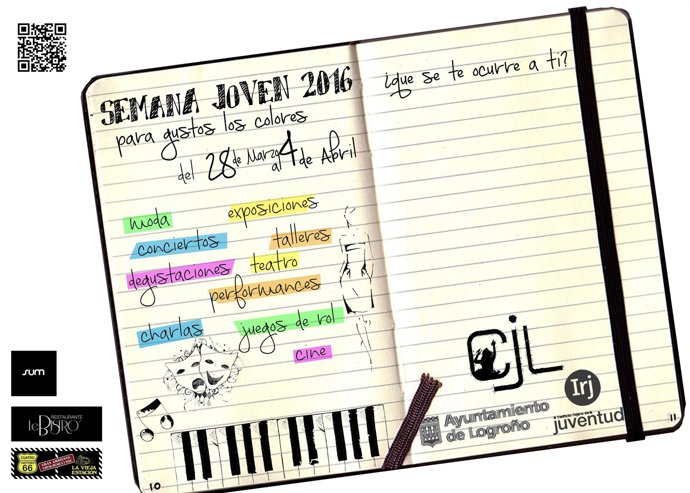 SEMANA JOVEN 2016
para gustos los colores
del 28 de Marzo al 4 de Abril
moda
exposiciones
conciertos
talleres
degustaciones
teatro
performances
charlas
juegos de rol
cine
10
¿que se te ocurre a ti?
cjL
Irj
Ayuntamiento
de Logroño
juventud
11
sum
RESTAURANTE
leBistro
CUATRO
66
LA VIEJA
ESTACIÓN